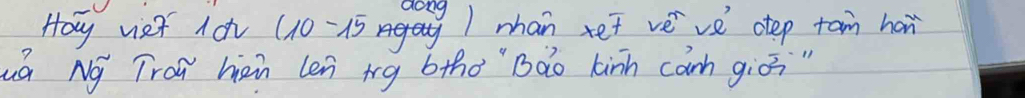 dòng
Hãy viết 1 đv (10-15 ngay) nhận xét về vẻ đẹp tâm hồn
của Ng Trãi hiện lên trg bthơ "Bảo kính cảnh giới"